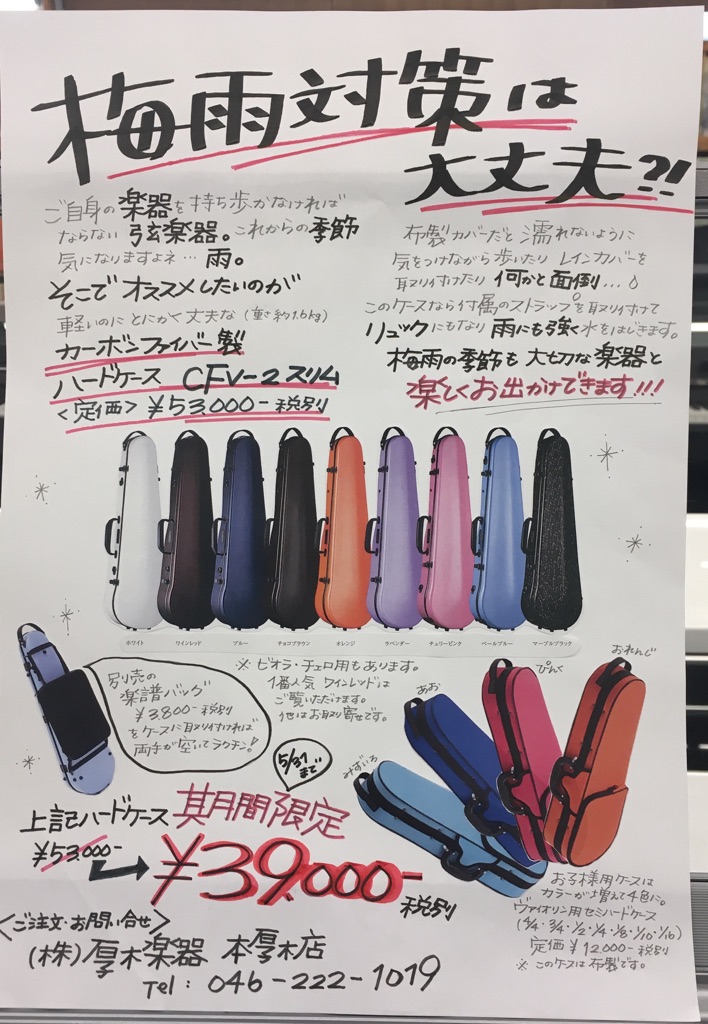 梅雨対策は
大丈夫?!
ご自身の楽器を持ち歩かなければ
ならない弦楽器。これからの季節
気になりますよネ…雨。
そこでオススメしたいのが
軽いのにとにかく丈夫な(重さ約1.6kg)
カーボンファイバー製
ハードケース CFV-2スリム
<定価>¥53.000-税別
布製カバーだと濡れないように
気をつけながら歩いたりレインカバーを
取り付けたり何かと面倒…
このケースなら付属のストラップを取り付けて
リュックにもなり雨にも強く水をはじきます。
梅雨の季節も大切な楽器と
楽しくお出かけできます!!!
ホワイト ワインレッド ブルー チョコブラウン オレンジ ラベンダー チェリーピンク ペールブルー マーブルブラック
※ビオラ・チェロ用もあります。
1番人気ワインレッドは
ご覧いただけます。
他はお取り寄せです。
別売の
楽譜バッグ
¥3.800-税別
をケースに取り付ければ
両手が空いてラクチン!
5/31
まで
上記ハードケース 期間限定
¥53.000-
¥39.000-
税別
みずいろ
あお
ぴんく
おれんじ
お子様用ケースは
カラーが増えて4色に。
ヴァイオリン用セミハードケース
(4/4・3/4・1/2・1/4・1/8・1/10・1/16)
定価¥12000-税別
※このケースは布製です。
<ご注文・お問い合せ>
(株)厚木楽器 本厚木店
Tel: 046-222-1019